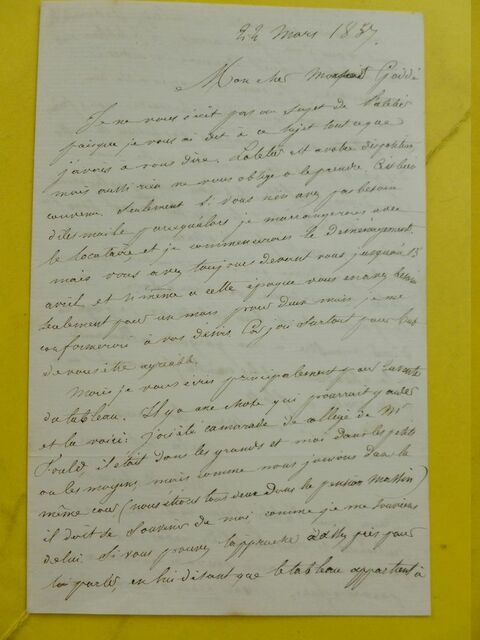 22 Mars 1857.
Mon cher Monsieur Goddé
Je ne vous écrit pas au sujet de l'atelier
puisque je vous ai dit à ce sujet tout ce que
j'avais à vous dire, l'atelier est à votre disposition
mais aussi rien ne vous oblige à le prendre
convenu. Seulement si vous n'en avez pas besoin
dites moi le parcequ'alors je m'arrangerais avec
le locataire et je commencerais le déménagement.
mais vous avez toujours devant vous jusqu'au 15
avril et si même à cette époque vous en avez besoin
seulement pour un mois pour deux mois je me
conformerai à vos désirs. surtout pour but
de vous être agréable.
Mais je vous écris principalement pour la vente
du tableau. Il y a une chose qui pourrait y aider
et la voici: j'ai été camarade de collège de Mr
Fould il était dans les grands et moi dans les petits
ou les moyens mais comme nous jouions dans la
même cour (nous étions tous deux dans la pension Massin)
il doit se souvenir de moi comme je me souviens
de lui. Si vous pouvez l'approcher assez près pour
lui parler, en lui disant que le tableau appartient à